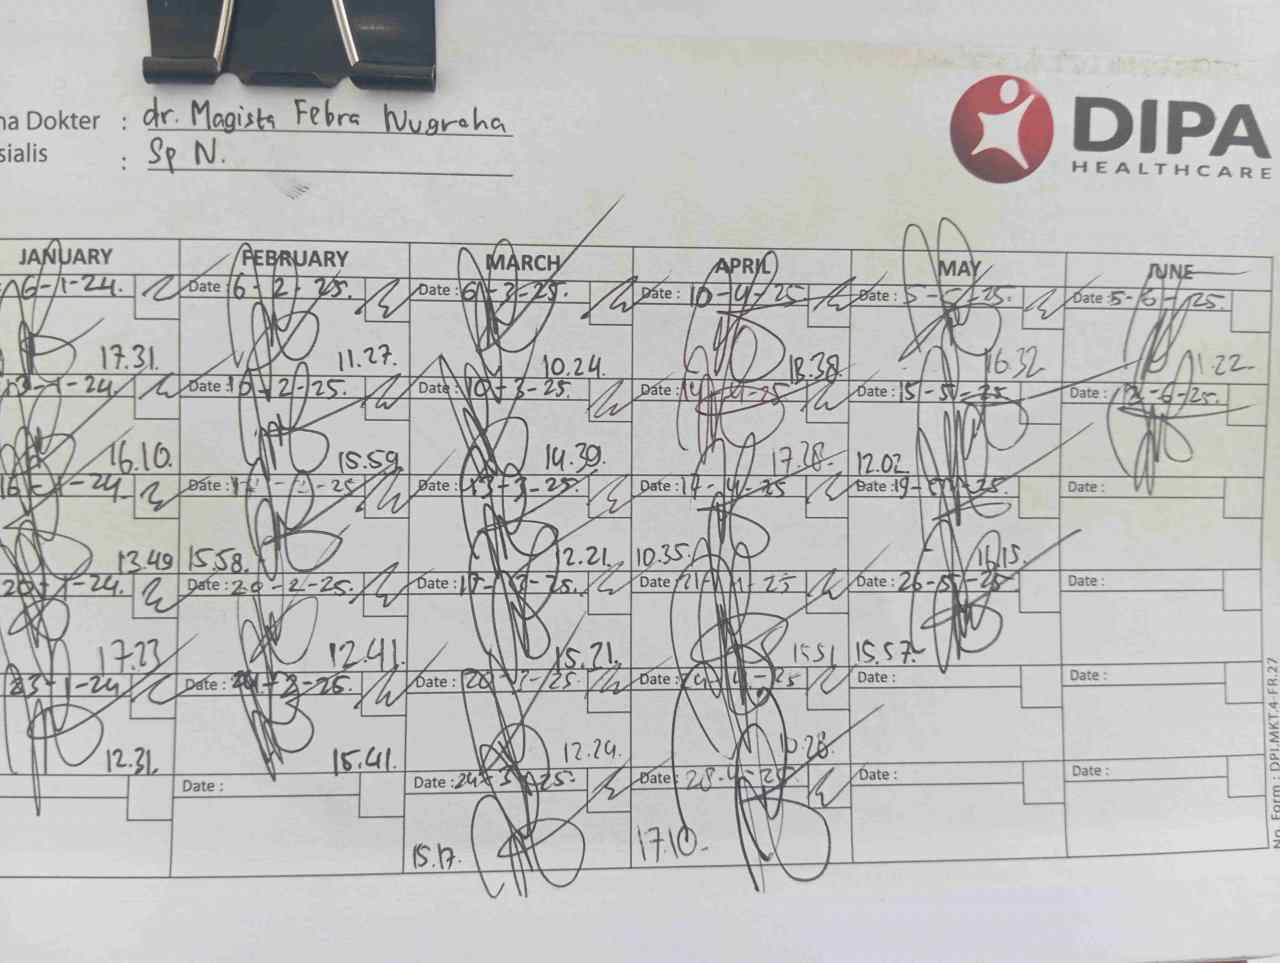 na Dokter : dr. Magista Febra Nugraha
sialis : Sp N.
DIPA
HEALTHCARE
JANUARY FEBRUARY MARCH APRIL MAY JUNE
6-1-24. Date : 6-2-25. Date : 6-3-25. Date : 10-4-25 Date : 5-5-25. Date : 5-6-25.
17.31. 11.27. 10.24. 18.38 16.32 1.22
13-1-24. Date : 10-2-25. Date : 10-3-25. Date : 14-4-25 Date : 15-5-25 Date : 12-6-25.
16.10. 15.59 14.39. 17.28. 12.02
16-1-24. Date : 25 Date : 13-3-25. Date : 17-4-25 Date : 19- -25. Date :
13.49 15.58. 12.21. 10.35. 16.15.
20-1-24. Date : 20-2-25. Date : 17-3-25. Date : 21- -25 Date : 26-5-25 Date :
17.23 12.41. 15.21. 15.51 15.57
23-1-24 Date : 24-2-25. Date : 20-3-25. Date : 24-4-25 Date : Date :
12.31. 15.41. 12.29. 10.28.
Date : Date : 24-3-25. Date : 28-4-25 Date : Date :
15.17. 17.10.
No. Form : DPI.MKT.4-FR.27